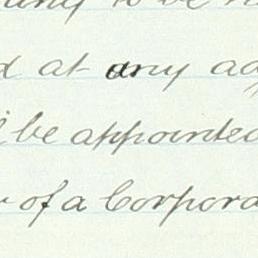 to be
at any ad
be appointed
of a Corpora